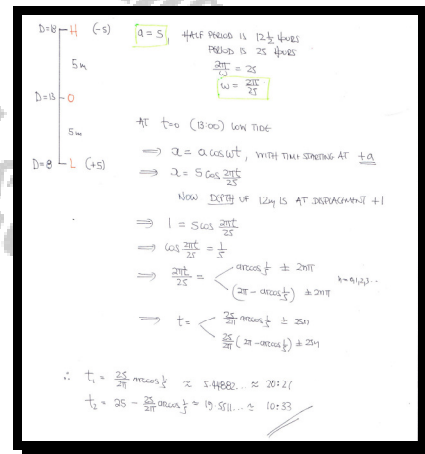 D=18 H (-5)
a = 5, HALF PERIOD IS 12½ HOURS
PERIOD IS 25 HOURS
5m
2π/ω = 25
ω = 2π/25
D=13 O
AT t=0 (13:00) LOW TIDE
5m
⇒ x = a cos ωt, WITH TIME STARTING AT +a
D=8 L (+5)
⇒ x = 5 cos 2πt/25
NOW DEPTH OF 12m IS AT DISPLACEMENT +1
⇒ 1 = 5 cos 2πt/25
⇒ cos 2πt/25 = 1/5
⇒ 2πt/25 = arccos 1/5 ± 2nπ
(2π - arccos 1/5) ± 2nπ n=0,1,2,3...
⇒ t = 25/2π arccos 1/5 ± 25n
25/2π (2π - arccos 1/5) ± 25n
∴ t₁ = 25/2π arccos 1/5 ≈ 5.44882... ≈ 20:27
t₂ = 25 - 25/2π arccos 1/5 ≈ 19.5511... ≈ 10:33